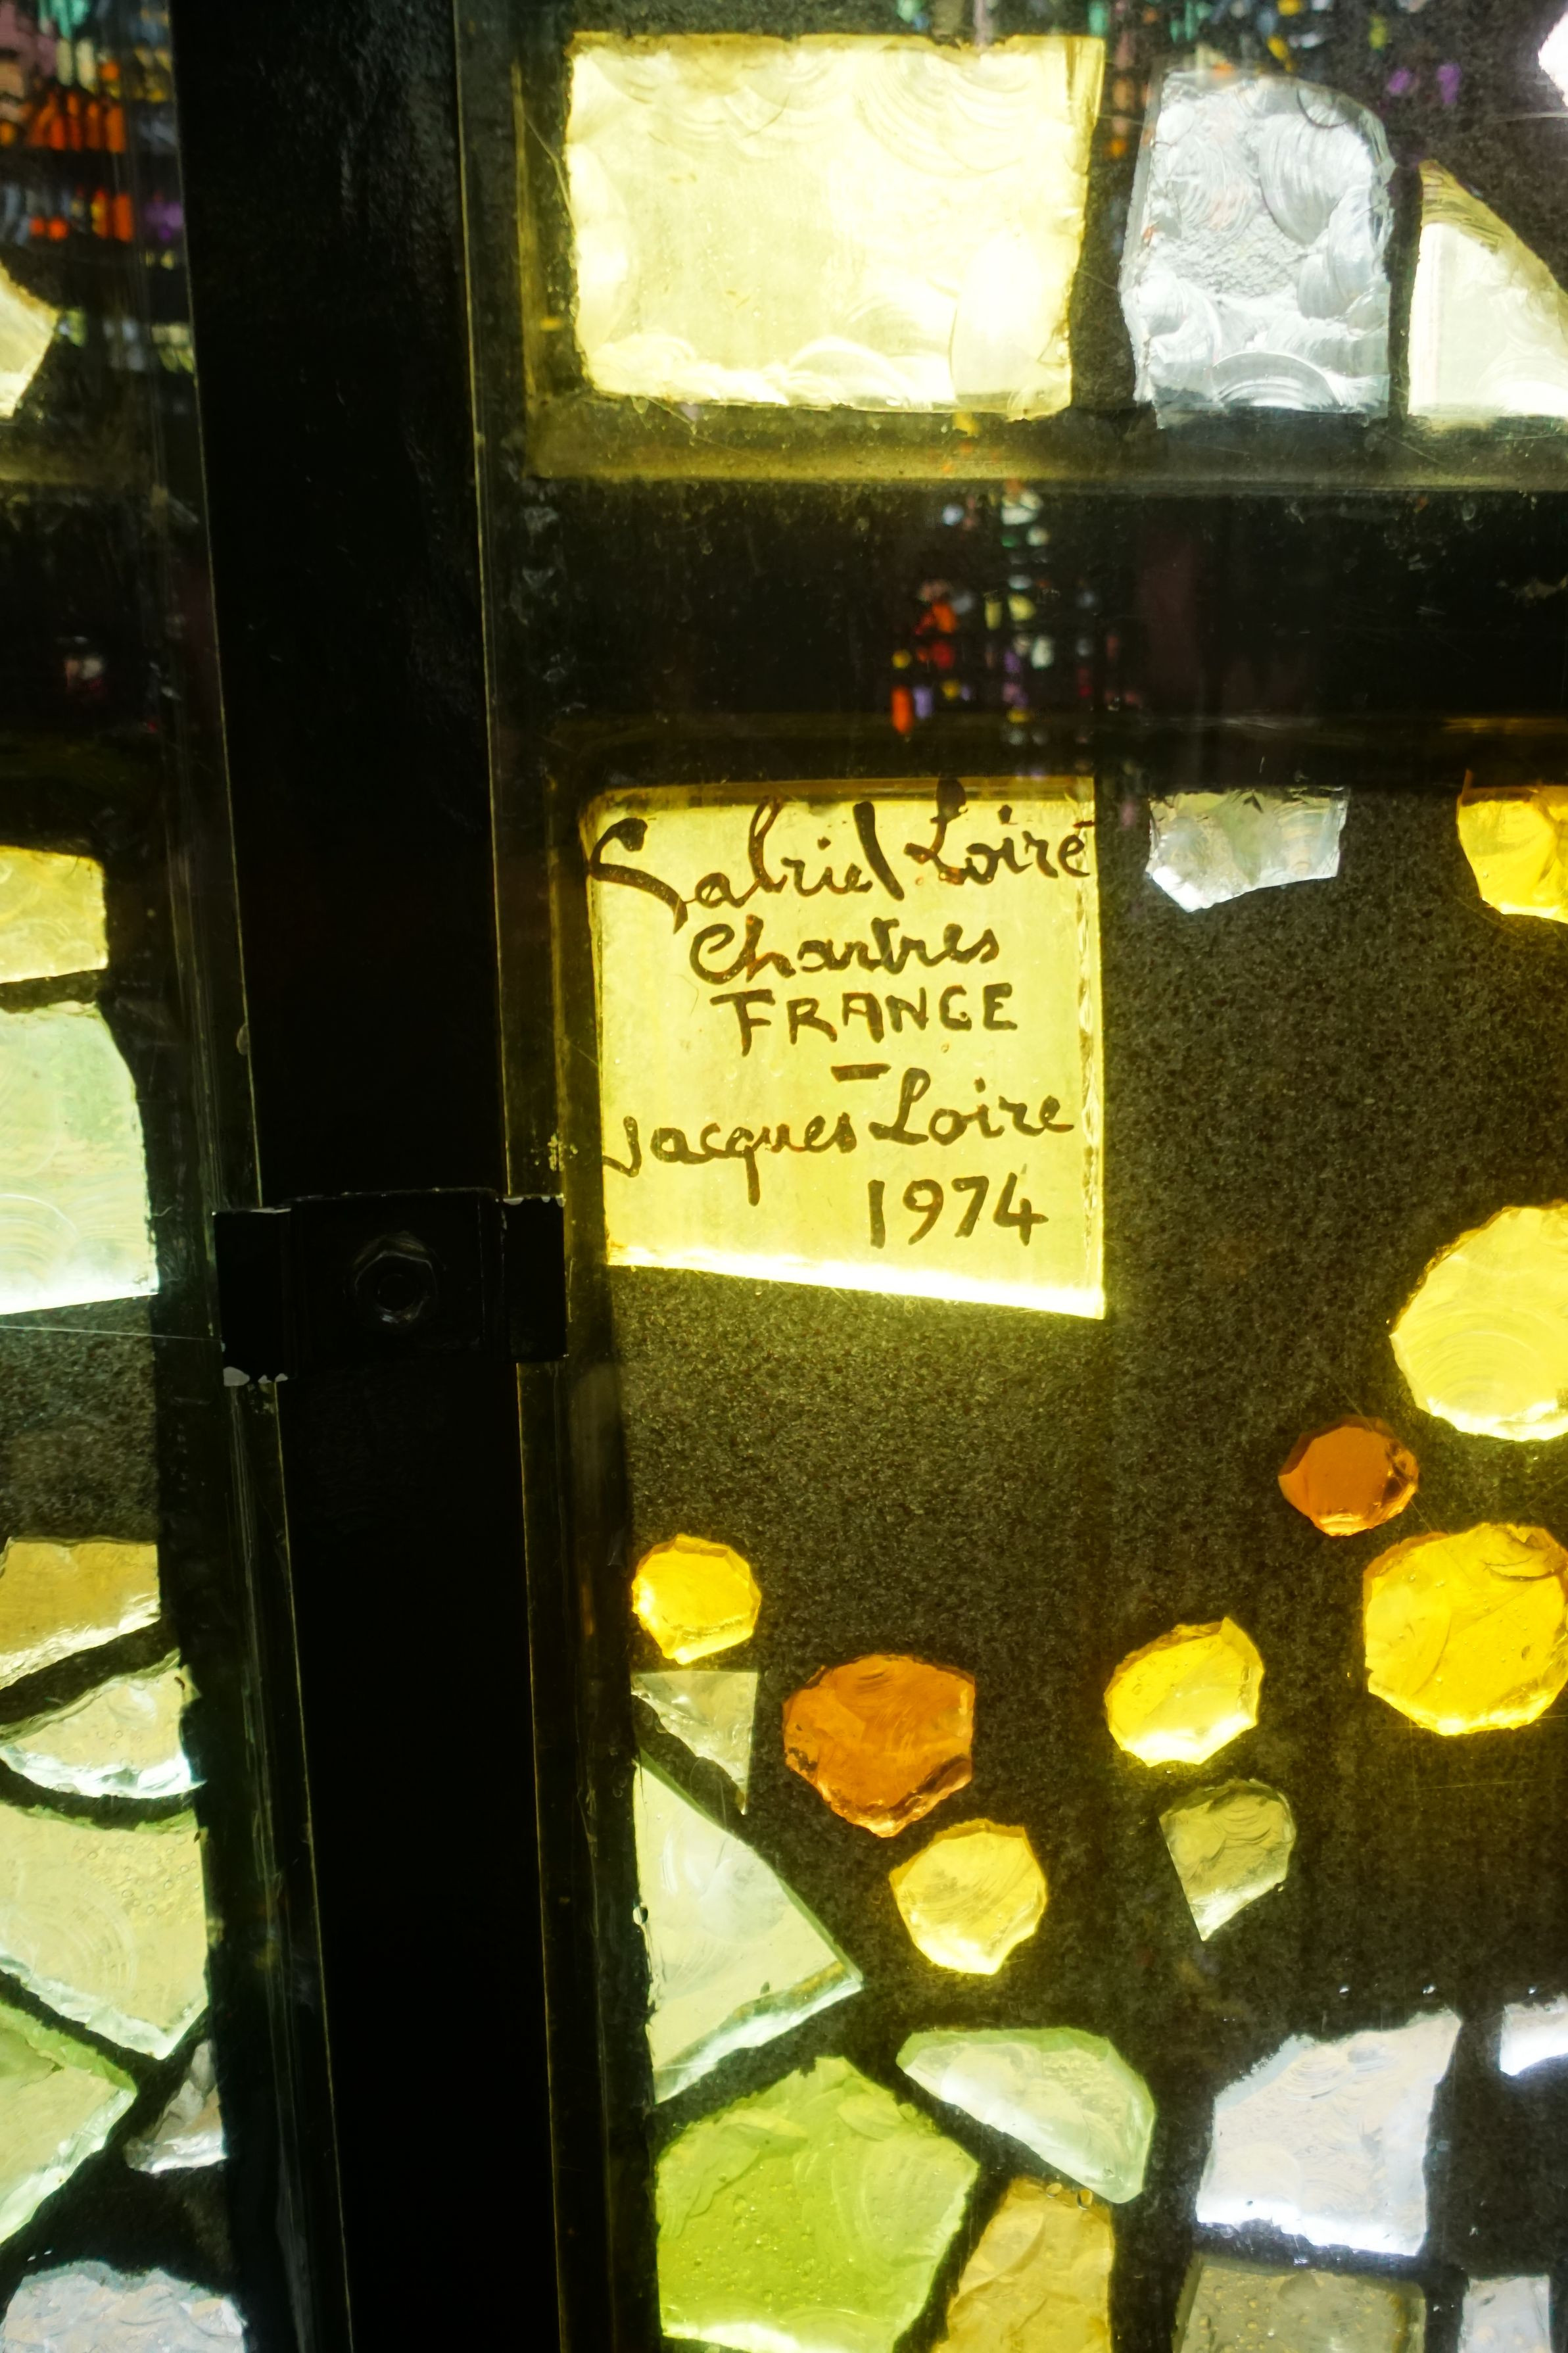 Gabriel Loire
Chartres
FRANCE
—
Jacques Loire
1974